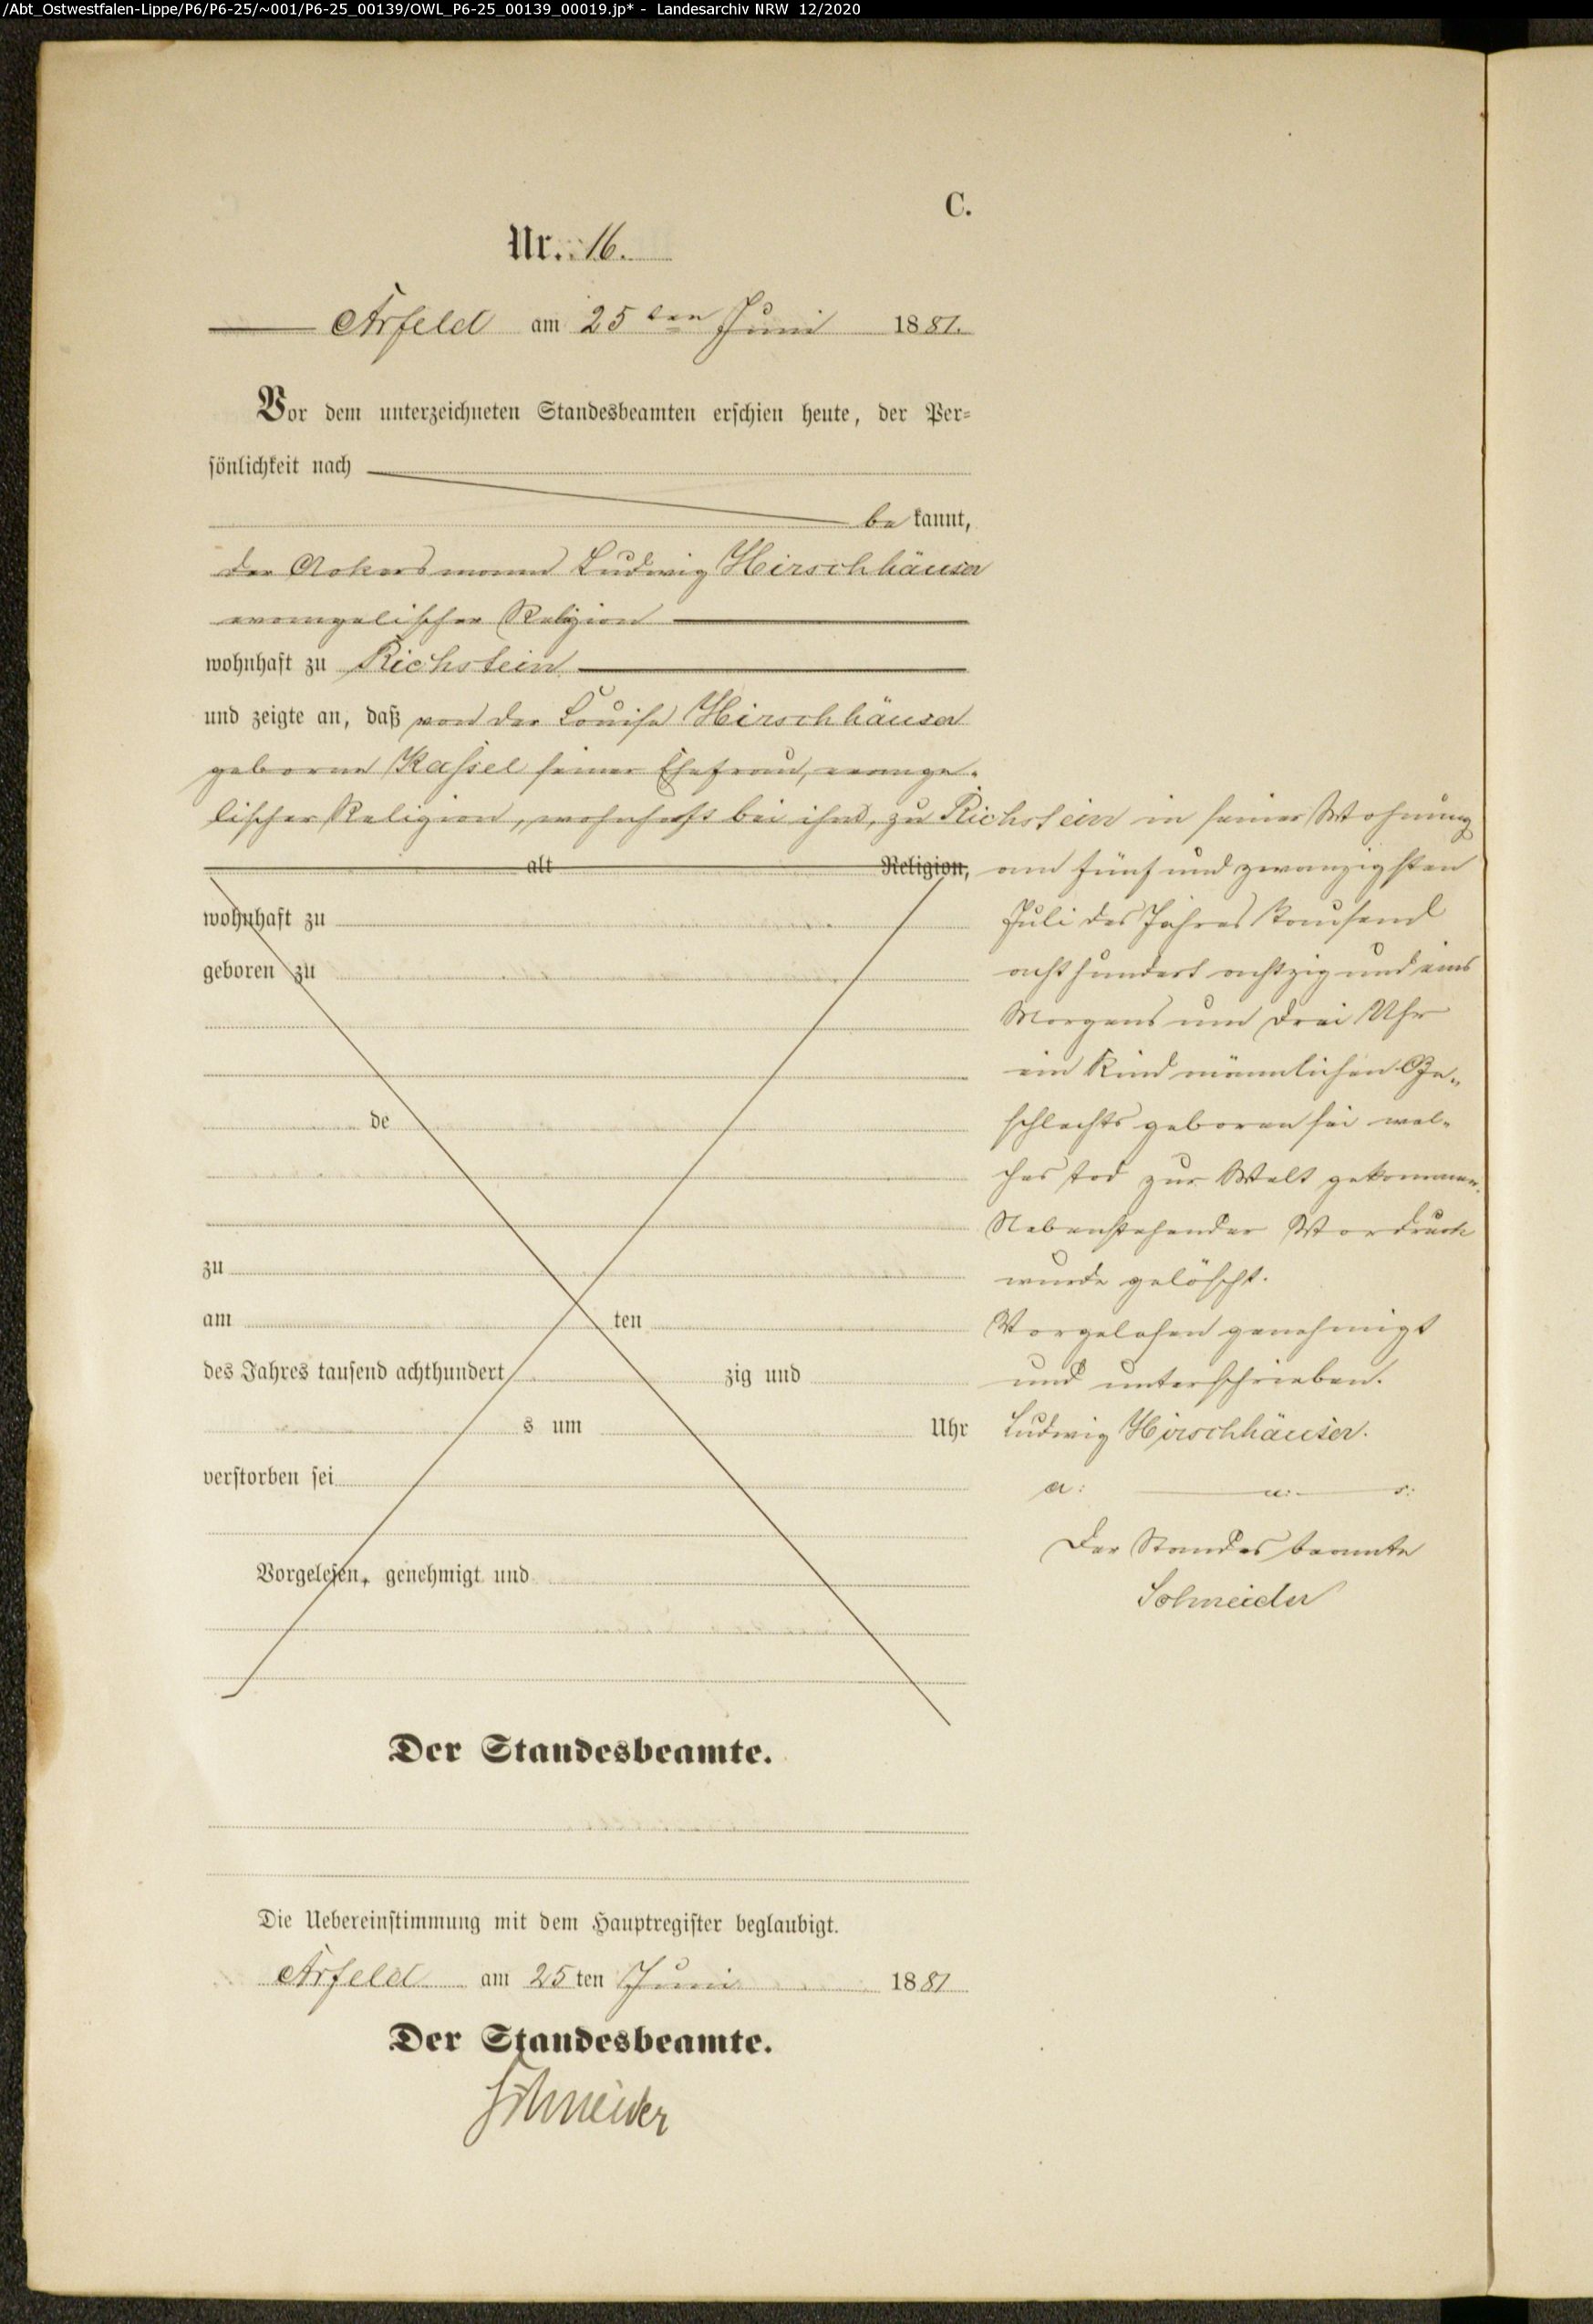 /Abt_Ostwestfalen-Lippe/P6/P6-25/~001/P6-25_00139/OWL_P6-25_00139_00019.jp* - Landesarchiv NRW 12/2020
C.
Nr. 16.
Arfeld am 25ten Juni 1881.
Vor dem unterzeichneten Standesbeamten erschien heute, der Per-
sönlichkeit nach
be kannt,
der Ackersmann Ludwig Hirschhäuser
evangelischer Religion
wohnhaft zu Richstein
und zeigte an, daß von der Louise Hirschhäuser
geborne Kassel seiner Ehefrau, evange-
lischer Religion, wohnhaft bei ihm, zu Richstein in seiner Wohnung
alt Religion,
wohnhaft zu
geboren zu
de
zu
am ten
des Jahres tausend achthundert zig und
s um Uhr
verstorben sei
Vorgelesen, genehmigt und
am fünf und zwanzigsten
Juli des Jahres tausend
acht hundert achtzig und eins
Morgens um drei Uhr
ein Kind männlichen Ge-
schlechts geboren sei wel-
ches tod zur Welt gekommen.
Nebenstehender Vordruck
wurde gelöscht.
Vorgelesen genehmigt
und unterschrieben.
Ludwig Hirschhäuser.
a: u: s:
Der Standesbeamte
Schneider
Der Standesbeamte.
Die Uebereinstimmung mit dem Hauptregister beglaubigt.
Arfeld am 25ten Juni 1881
Der Standesbeamte.
Schneider